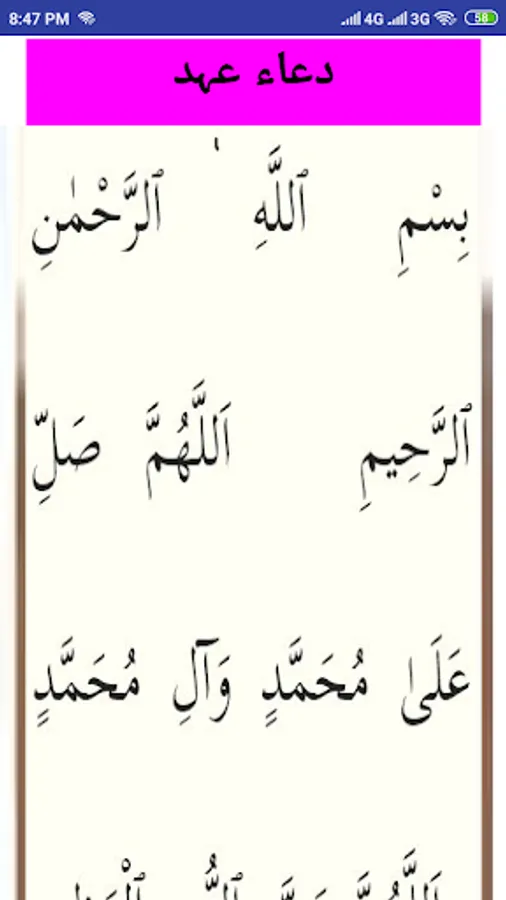 8:47 PM 4G 3G 58
دعاء عهد
بِسْمِ ٱللَّهِ ٱلرَّحْمٰنِ
ٱلرَّحِيمِ اَللَّهُمَّ صَلِّ
عَلَىٰ مُحَمَّدٍ وَآلِ مُحَمَّدٍ